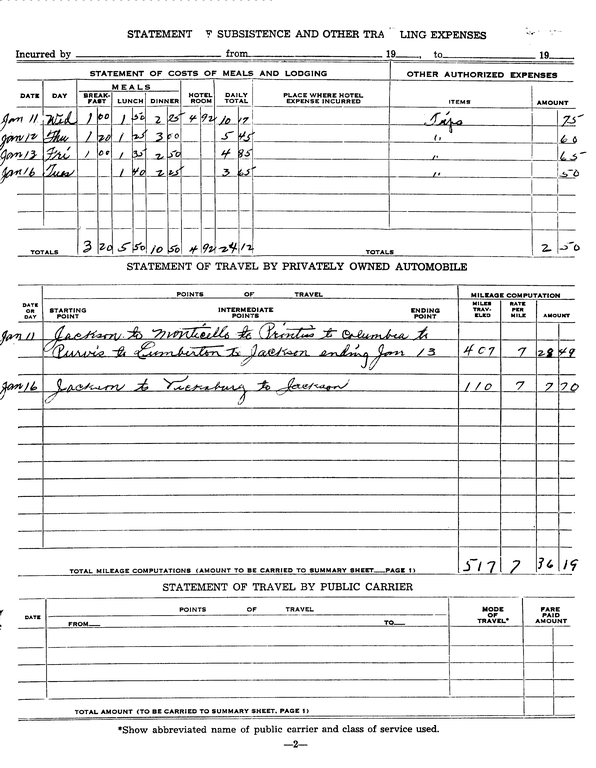 STATEMENT F SUBSISTENCE AND OTHER TRA LING EXPENSES
Incurred by from 19 , to 19
STATEMENT OF COSTS OF MEALS AND LODGING OTHER AUTHORIZED EXPENSES
DATE DAY MEALS BREAK-FAST LUNCH DINNER HOTEL ROOM DAILY TOTAL PLACE WHERE HOTEL EXPENSE INCURRED ITEMS AMOUNT
Jan 11 Wed 1 00 1 50 2 25 4 92 10 17 Tips 75
Jan 12 Thu 1 20 1 25 3 00 5 45 " 60
Jan 13 Fri 1 00 1 35 2 50 4 85 " 65
Jan 16 Tues 1 40 2 25 3 65 " 50
TOTALS 3 20 5 50 10 50 4 92 24 12 TOTALS 2 50
STATEMENT OF TRAVEL BY PRIVATELY OWNED AUTOMOBILE
DATE OR DAY POINTS OF TRAVEL MILEAGE COMPUTATION
STARTING POINT INTERMEDIATE POINTS ENDING POINT MILES TRAV-ELED RATE PER MILE AMOUNT
Jan 11 Jackson to Monticello to Prentiss to Columbia to
Purvis to Lumberton to Jackson ending Jan 13 407 7 28 49
Jan 16 Jackson to Vicksburg to Jackson 110 7 7 70
TOTAL MILEAGE COMPUTATIONS (AMOUNT TO BE CARRIED TO SUMMARY SHEET—PAGE 1) 517 7 36 19
STATEMENT OF TRAVEL BY PUBLIC CARRIER
DATE POINTS OF TRAVEL MODE OF TRAVEL* FARE PAID AMOUNT
FROM— TO—
TOTAL AMOUNT (TO BE CARRIED TO SUMMARY SHEET, PAGE 1)
*Show abbreviated name of public carrier and class of service used.
—2—